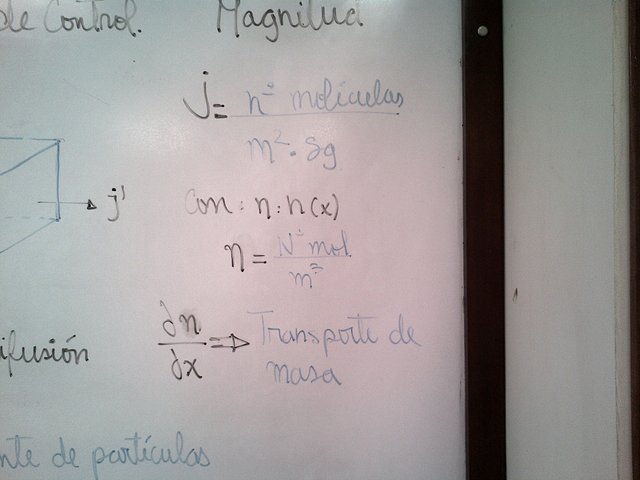 de Control. Magnitud
j = nº moléculas
m² . Sg
j'
Con: n: n(x)
n = Nº mol
m³
ifusión ∂n/∂x ⇒ Transporte de
masa
nte de partículas